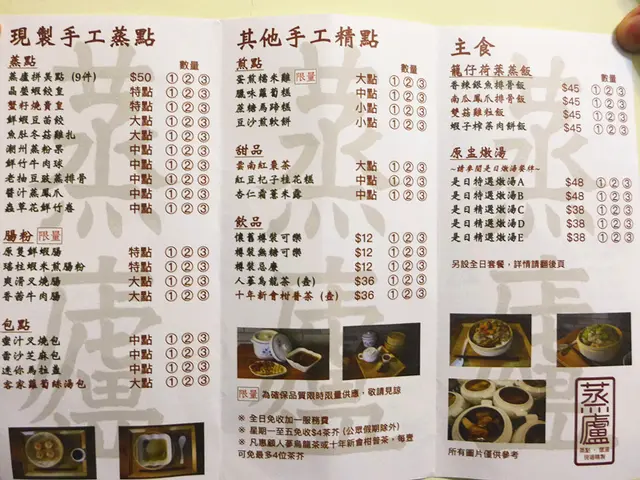 現製手工蒸點
蒸點 數量
蒸廬拼美點 (9件) $50 ①②③
晶瑩蝦餃皇 特點 ①②③
蟹籽燒賣皇 特點 ①②③
鮮蝦豆苗餃 大點 ①②③
魚肚冬菇雞扎 大點 ①②③
潮州蒸粉果 中點 ①②③
鮮竹牛肉球 中點 ①②③
老抽豆豉蒸排骨 中點 ①②③
醬汁蒸鳳爪 中點 ①②③
蟲草花鮮竹卷 中點 ①②③
腸粉 限量 數量
原隻鮮蝦腸 特點 ①②③
瑤柱蝦米煎腸粉 特點 ①②③
爽滑叉燒腸 大點 ①②③
香茜牛肉腸 大點 ①②③
包點 數量
蜜汁叉燒包 中點 ①②③
雷沙芝麻包 中點 ①②③
迷你馬拉盞 中點 ①②③
客家蘿蔔絲湯包 大點 ①②③
其他手工精點
煎點 數量
窩煎糯米雞 限量 大點 ①②③
臘味蘿蔔糕 中點 ①②③
蔗糖馬蹄糕 小點 ①②③
豆沙煎軟餅 小點 ①②③
甜品
雲南紅棗茶 大點 ①②③
紅豆杞子桂花糕 中點 ①②③
杏仁霜薏米露 中點 ①②③
飲品
懷舊樽裝可樂 $12 ①②③
樽裝無糖可樂 $12 ①②③
樽裝忌廉 $12 ①②③
人蔘烏龍茶 (壺) $36 ①②③
十年新會柑普茶 (壺) $36 ①②③
限量 為確保品質限時限量供應，敬請見諒
※ 全日免收加一服務費
※ 星期一至五免收$4茶芥 (公眾假期除外)
※ 凡惠顧人蔘烏龍茶或十年新會柑普茶，每壺
可免最多4位茶芥
主食
籠仔荷葉蒸飯 數量
香辣銀魚排骨飯 $45 ①②③
南瓜鳳爪排骨飯 $45 ①②③
雙菇雞粒飯 $45 ①②③
蝦子榨菜肉餅飯 $45 ①②③
原盅燉湯
~請參閱是日燉湯安排~ 數量
是日特選燉湯A $48 ①②③
是日特選燉湯B $48 ①②③
是日精選燉湯C $38 ①②③
是日精選燉湯D $38 ①②③
是日精選燉湯E $38 ①②③
另設全日套餐，詳情請翻後頁
所有圖片僅供參考
蒸廬
蒸廬